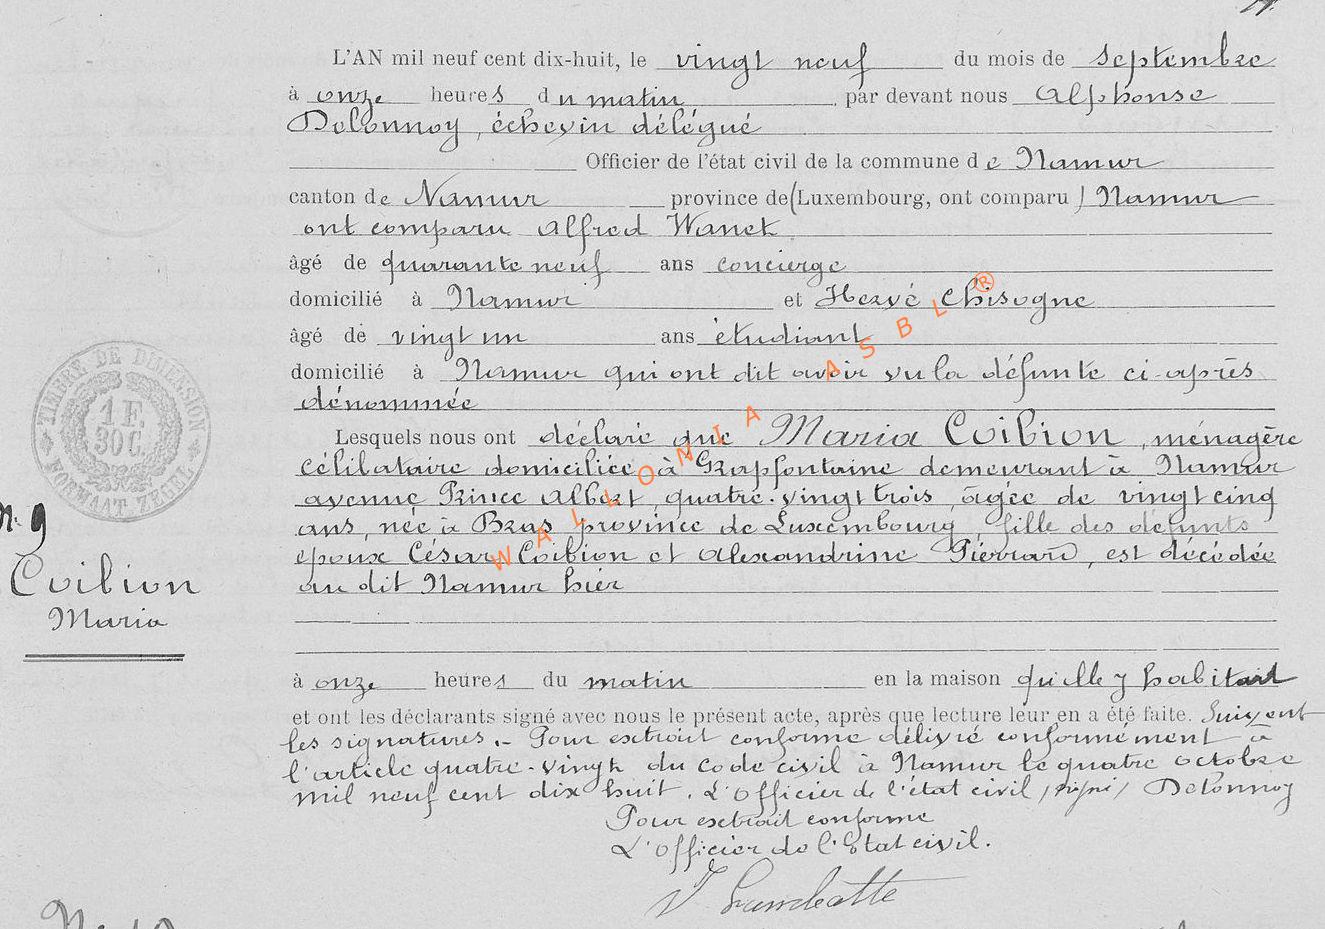 L'AN mil neuf cent dix-huit, le vingt neuf du mois de Septembre
à onze heures du matin, par devant nous Alphonse
Delonnoy, échevin délégué
Officier de l'état civil de la commune de Namur
canton de Namur province de (Luxembourg, ont comparu) Namur
ont comparu Alfred Wanet
âgé de quarante neuf ans concierge
domicilié à Namur et Hervé Chisogne
âgé de vingt un ans étudiant
domicilié à Namur qui ont dit avoir vu la défunte ci-après
dénommée
Lesquels nous ont déclaré que Maria Coibion, ménagère
célibataire domiciliée à Grapfontaine demeurant à Namur
avenue Prince Albert, quatre-vingt trois, âgée de vingt cinq
ans, née à Bras province de Luxembourg, fille des défunts
époux César Coibion et Alexandrine Pierrard, est décédée
au dit Namur hier
à onze heures du matin en la maison qu'elle y habitait
et ont les déclarants signé avec nous le présent acte, après que lecture leur en a été faite. Suivent
les signatures.- Pour extrait conforme délivré conformément à
l'article quatre-vingt du code civil à Namur le quatre octobre
mil neuf cent dix huit. L'Officier de l'état civil, (signé) Delonnoy
Pour extrait conforme
L'officier de l'Etat civil.
TIMBRE DE DIMENSION
1 F.
30 C.
FORMAAT ZEGEL
n. 9
Coibion
Maria
WALLONIA ASBL ®